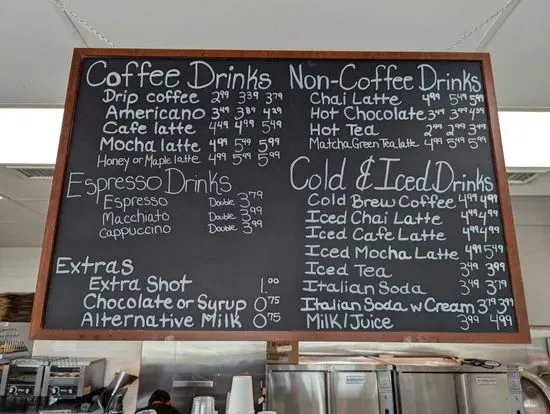 Coffee Drinks
Drip coffee 2.99 3.39 3.79
Americano 3.49 3.89 4.29
Cafe latte 4.49 4.99 5.49
Mocha latte 4.99 5.49 5.99
Honey or Maple latte 4.99 5.49 5.99
Espresso Drinks
Espresso Double 3.79
Macchiato Double 3.99
Cappuccino Double 3.99
Extras
Extra Shot 1.00
Chocolate or Syrup 0.75
Alternative Milk 0.75
Non-Coffee Drinks
Chai Latte 4.99 5.49 5.99
Hot Chocolate 3.49 3.99 4.39
Hot Tea 2.49 2.99 3.49
Matcha Green Tea latte 4.99 5.49 5.99
Cold & Iced Drinks
Cold Brew Coffee 4.49 4.99
Iced Chai Latte 4.49 4.99
Iced Cafe Latte 4.49 4.99
Iced Mocha Latte 4.99 5.49
Iced Tea 3.49 3.99
Italian Soda 3.49 3.79
Italian Soda w Cream 3.79 3.99
Milk/Juice 3.99 4.99